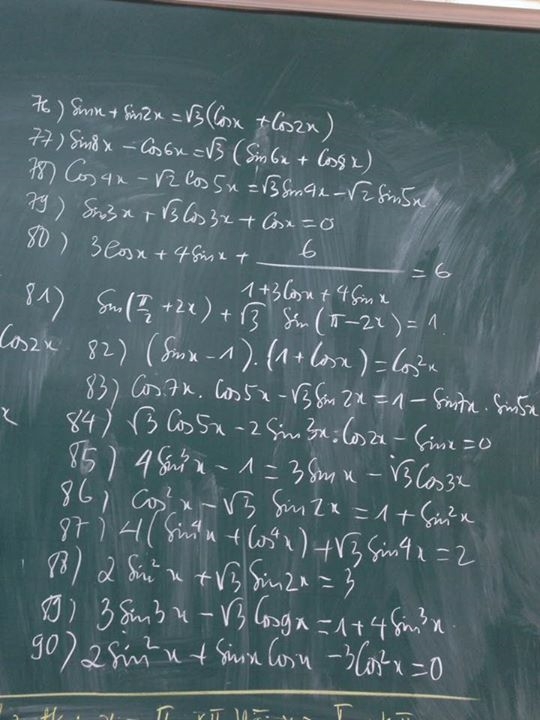 76) Sinx + Sin2x = √3 (Cosx + Cos2x)
77) Sin8x − Cos6x = √3 (Sin6x + Cos8x)
78) Cos4x − √2 Cos5x = √3 Sin4x − √2 Sin5x
79) Sin3x + √3 Cos3x + Cosx = 0
80) 3Cosx + 4Sinx + 6 / (1 + 3Cosx + 4Sinx) = 6
81) Sin(π/2 + 2x) + √3 Sin(π − 2x) = 1.
Cos2x
82) (Sinx − 1).(1 + Cosx) = Cos²x
83) Cos7x. Cos5x − √3 Sin2x = 1 − Sin7x. Sin5x
x
84) √3 Cos5x − 2 Sin3x. Cos2x − Sinx = 0
85) 4 Sin³x − 1 = 3 Sinx − √3 Cos3x
86) Cos²x − √3 Sin2x = 1 + Sin²x
87) 4(Sin⁴x + Cos⁴x) + √3 Sin4x = 2
88) 2 Sin²x + √3 Sin2x = 3
89) 3 Sin3x − √3 Cos9x = 1 + 4 Sin³x.
90) 2 Sin²x + Sinx Cosx − 3Cos²x = 0